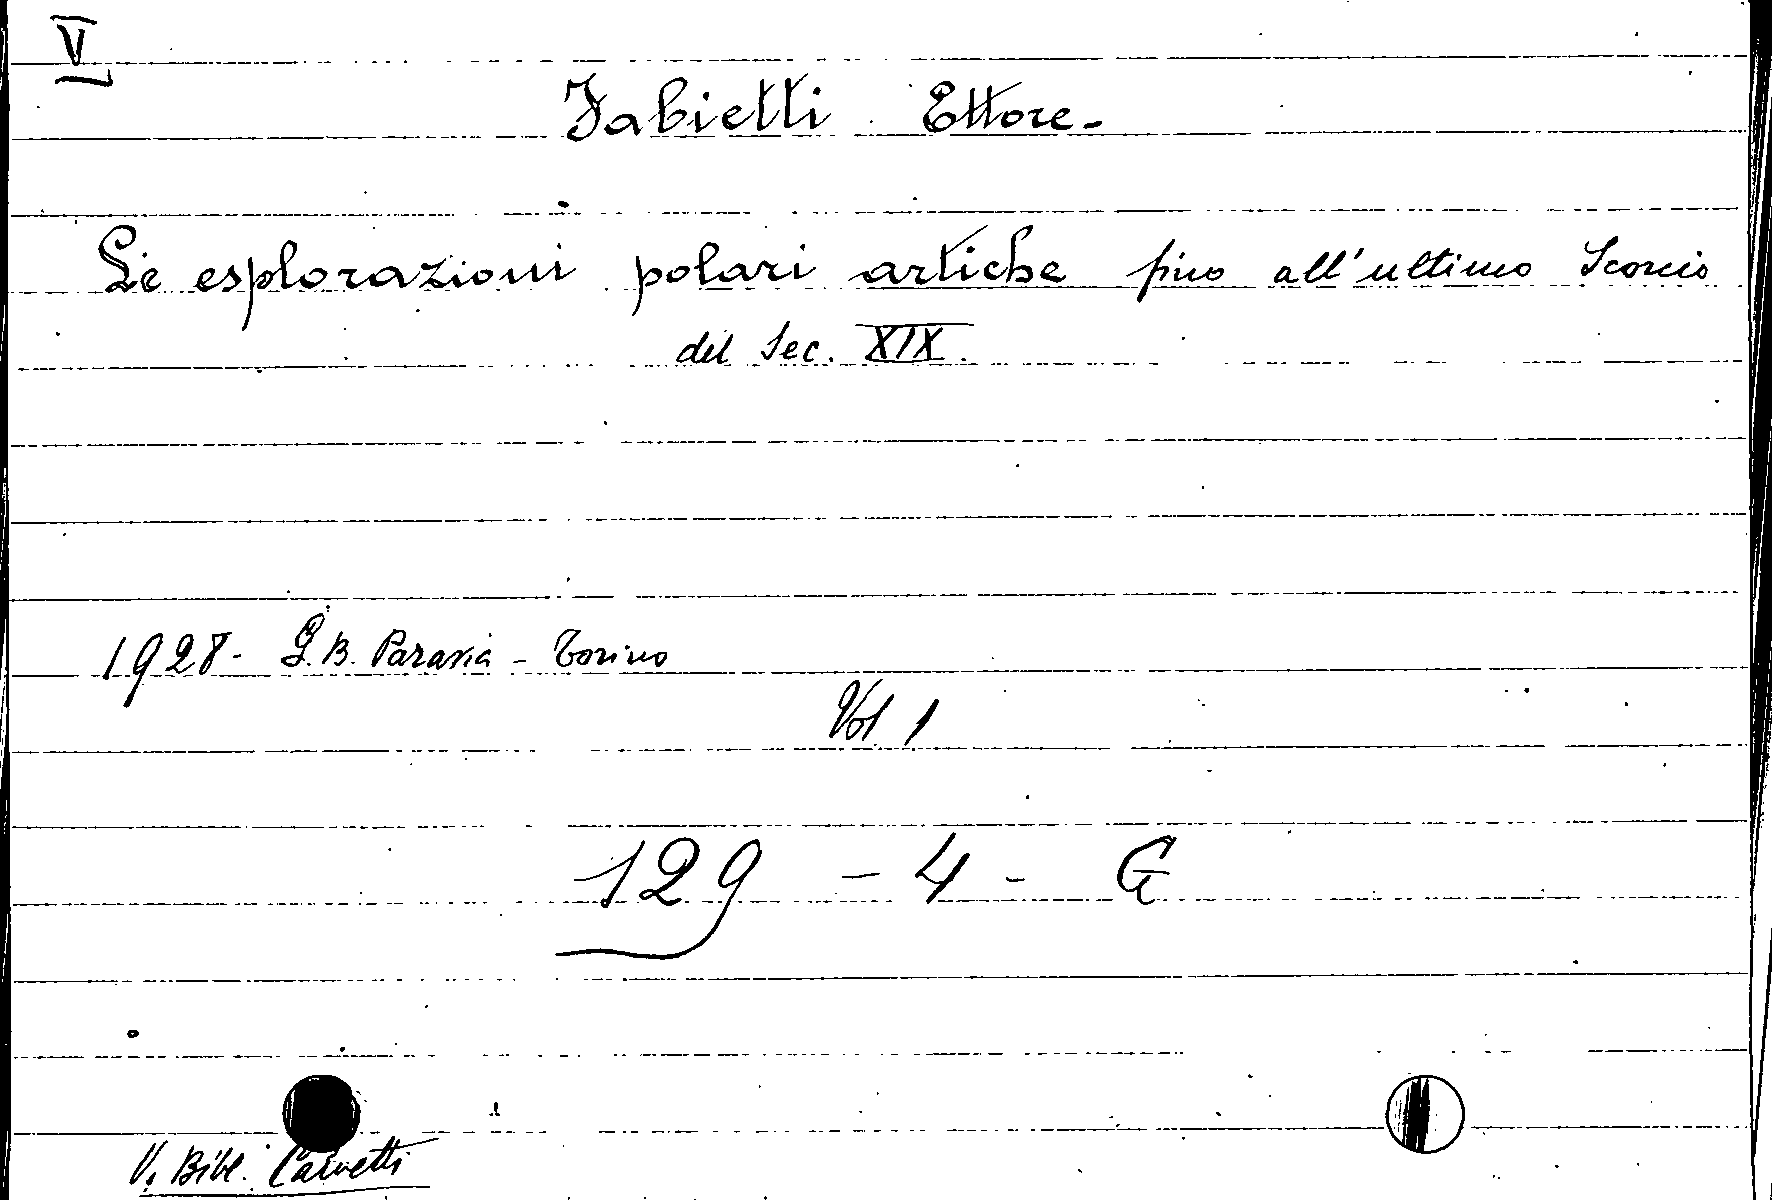 V
Fabietti Ettore-
Le esplorazioni polari artiche fino all'ultimo Scorcio
del Sec. XIX.
1928- G.B. Paravia - Torino
Vol 1
129 - 4 - G
V. Bibl.